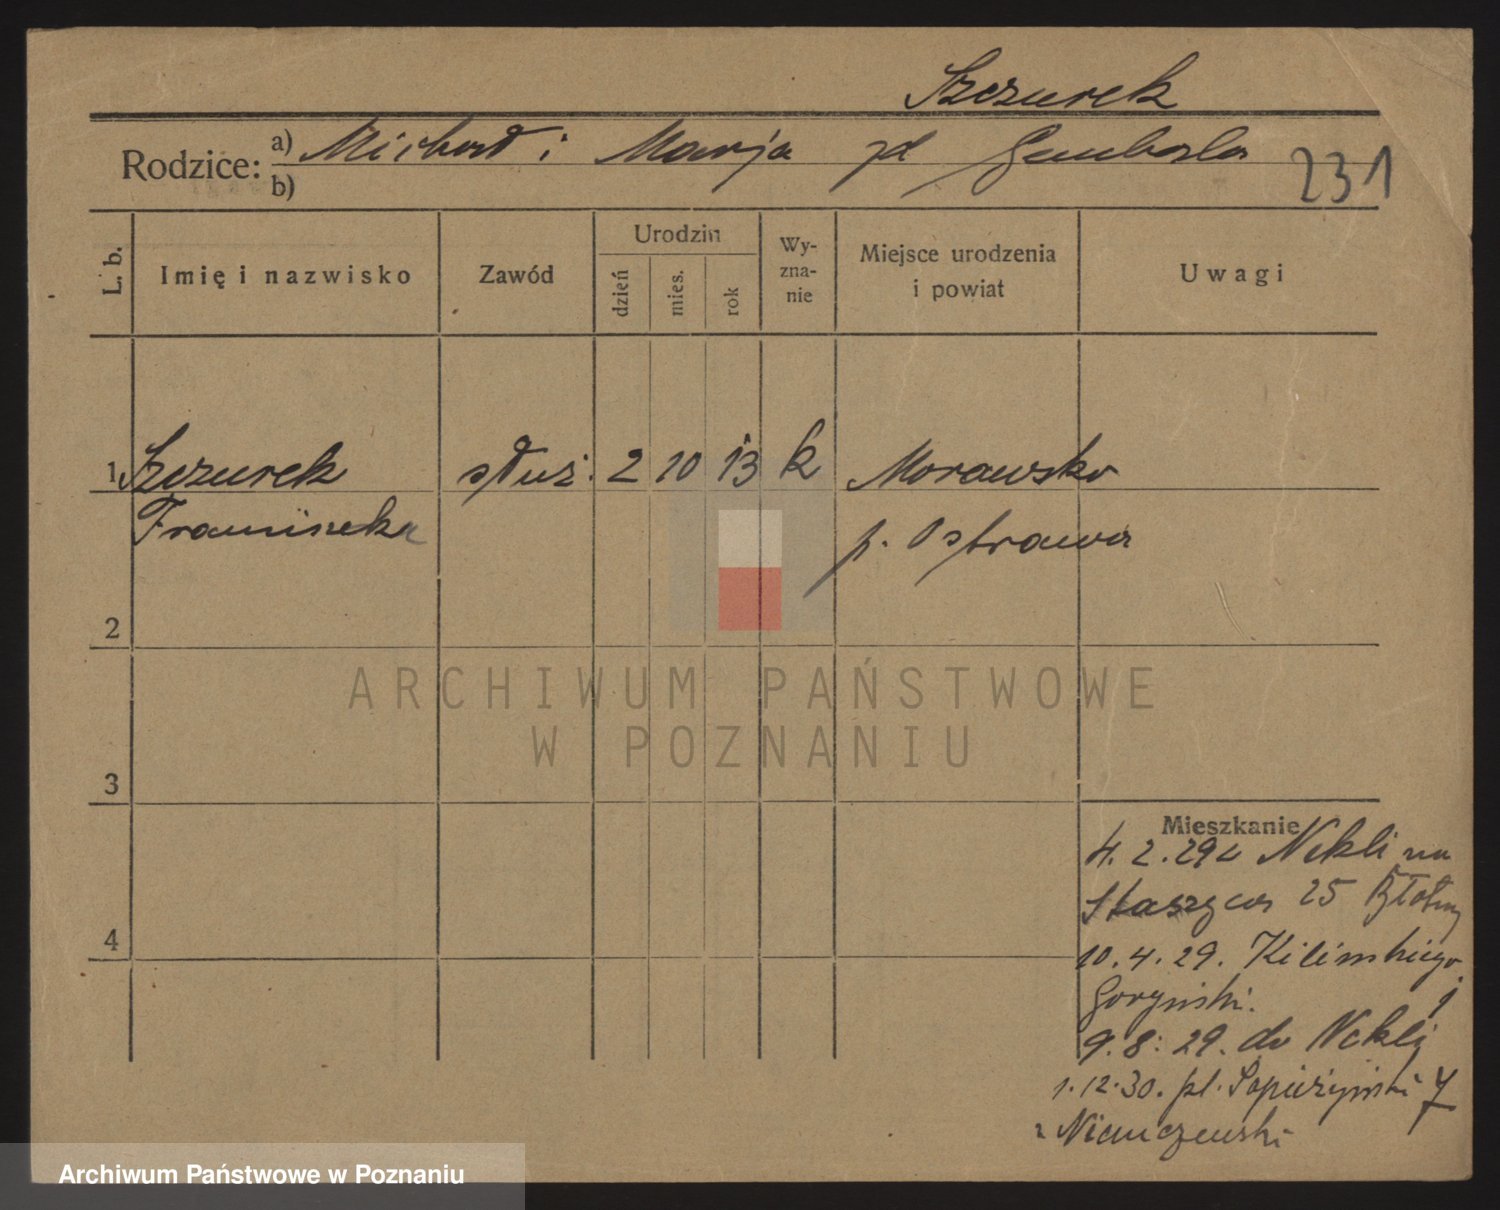 Szczurek
Rodzice: a) Michał i Marja zd Gembala
b)
231
L. b.
Imię i nazwisko
Zawód
Urodzin
dzień
mies.
rok
Wy-
zna-
nie
Miejsce urodzenia
i powiat
Uwagi
1 Szczurek służ. 2 10 13 k Morawsko
Franciszka p. Ostrawa
2
3
4
ARCHIWUM PAŃSTWOWE
W POZNANIU
Mieszkanie
4.2.29 z Nekli na
Staszyca 25
10.4.29. Kilińskiego
Goryński.
9.8.29. do Nekli
1.12.30. pl. Sapieżyński 7
z Niemczewski
Archiwum Państwowe w Poznaniu